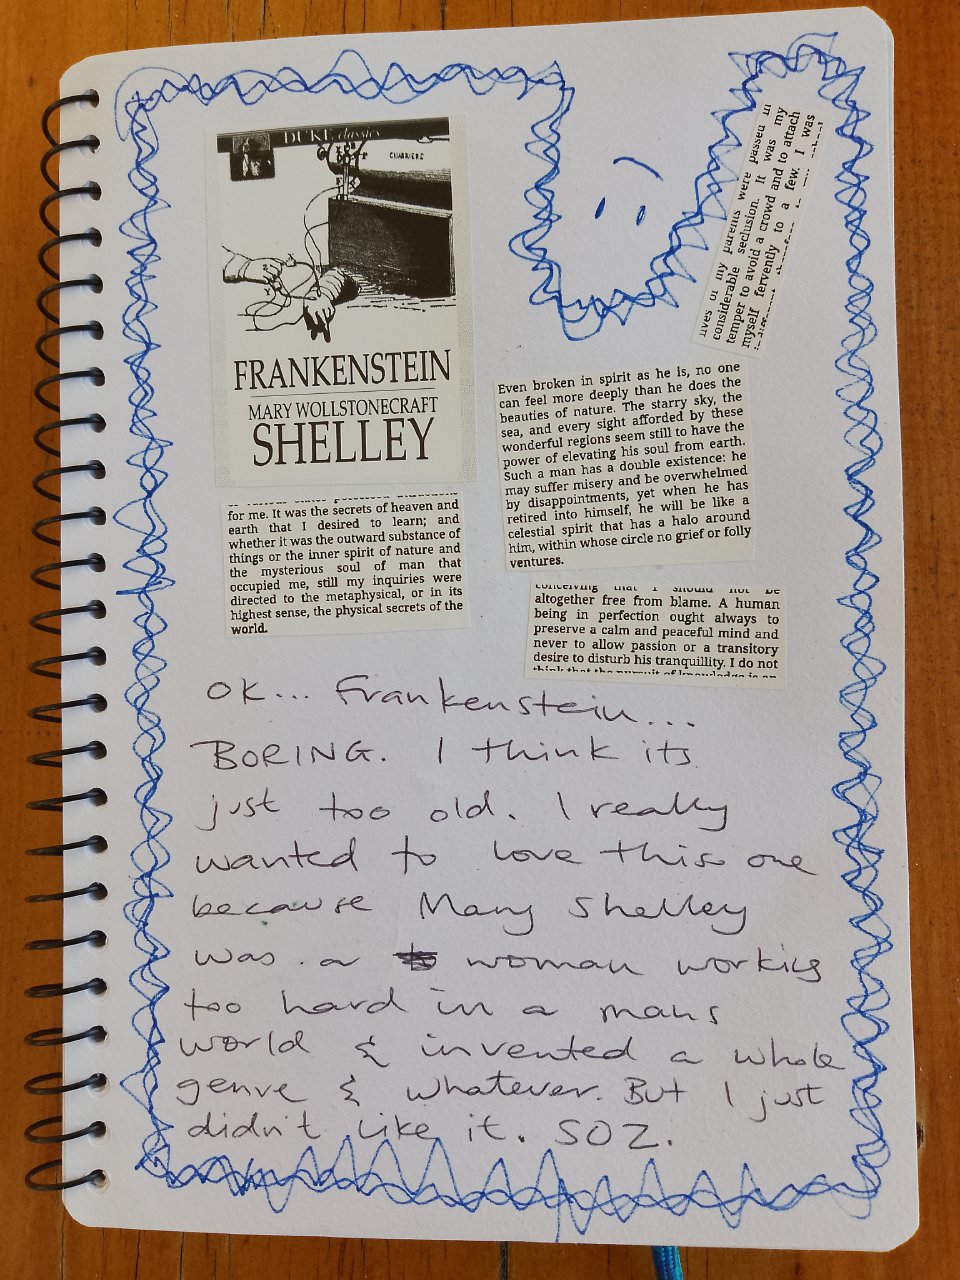 DUKE classics
CHARRIERE
FRANKENSTEIN
MARY WOLLSTONECRAFT
SHELLEY
lives of my parents were passed in
considerable seclusion. It was my
temper to avoid a crowd and to attach
myself fervently to a few. I was
Even broken in spirit as he is, no one
can feel more deeply than he does the
beauties of nature. The starry sky, the
sea, and every sight afforded by these
wonderful regions seem still to have the
power of elevating his soul from earth.
Such a man has a double existence: he
may suffer misery and be overwhelmed
by disappointments, yet when he has
retired into himself, he will be like a
celestial spirit that has a halo around
him, within whose circle no grief or folly
ventures.
for me. It was the secrets of heaven and
earth that I desired to learn; and
whether it was the outward substance of
things or the inner spirit of nature and
the mysterious soul of man that
occupied me, still my inquiries were
directed to the metaphysical, or in its
highest sense, the physical secrets of the
world.
conceiving that I should not be
altogether free from blame. A human
being in perfection ought always to
preserve a calm and peaceful mind and
never to allow passion or a transitory
desire to disturb his tranquillity. I do not
think that the pursuit of knowledge is an
OK... Frankenstein...
BORING. I think its
just too old. I really
wanted to love this one
because Mary Shelley
was a woman working
too hard in a mans
world & invented a whole
genre & whatever. But I just
didn't like it. SOZ.